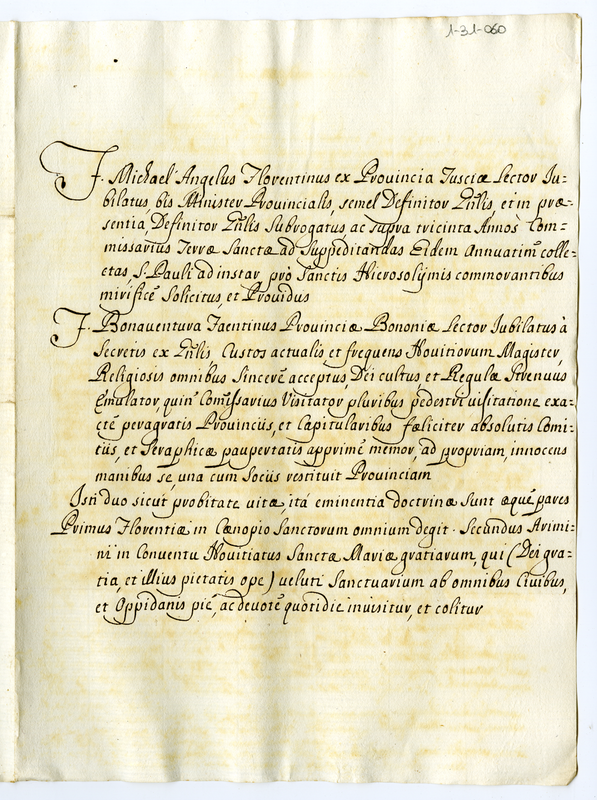 1-31-060
F. Michael Angelus Florentinus ex Provincia Tusciæ Lector Ju=
bilatus, bis Minister Provincialis, semel Definitor Gñlis, et in præ=
sentia, Definitor Gñlis Subrogatus, ac supra tricinta Annos Com=
missarius Terræ Sanctæ ad Suppeditandas Eidem Annuatim̃ colle=
ctas, S. Pauli ad instar, prò Sanctis Hierosolymis commorantibus
mirificè Solicitus, et Providus
F. Bonaventura Faentinus Provinciæ Bononiæ Lector Jubilatus à
Secretis ex Gñlis Custos actualis, et frequens Novitiorum Magister,
Religiosis omnibus Sincerè acceptus, Dei cultus, et Regulæ Strenuus
Emulator, quin Com̃issarius Visitator pluribus pedestri visitatione exa=
ctè peragratis Provinciis, et Capitularibus fæliciter absolutis Comi=
tiis, et Seraphicæ paupertatis apprimè memor, ad propriam, innocens
manibus se, una cum Sociis restituit Provinciam
Isti duo sicut probitate vitæ, ità eminentia doctrinæ sunt æquè pares
Primus Florentiæ in Cænopio Sanctorum omnium degit. Secundus Arimi=
ni in Conventu Novitiatus Sanctæ Mariæ gratiarum, qui (Dei gra=
tia, et illius pietatis ope) veluti Sanctuarium ab omnibus Civibus,
et Oppidanis piè, ac devotè quotidie invisitur, et colitur